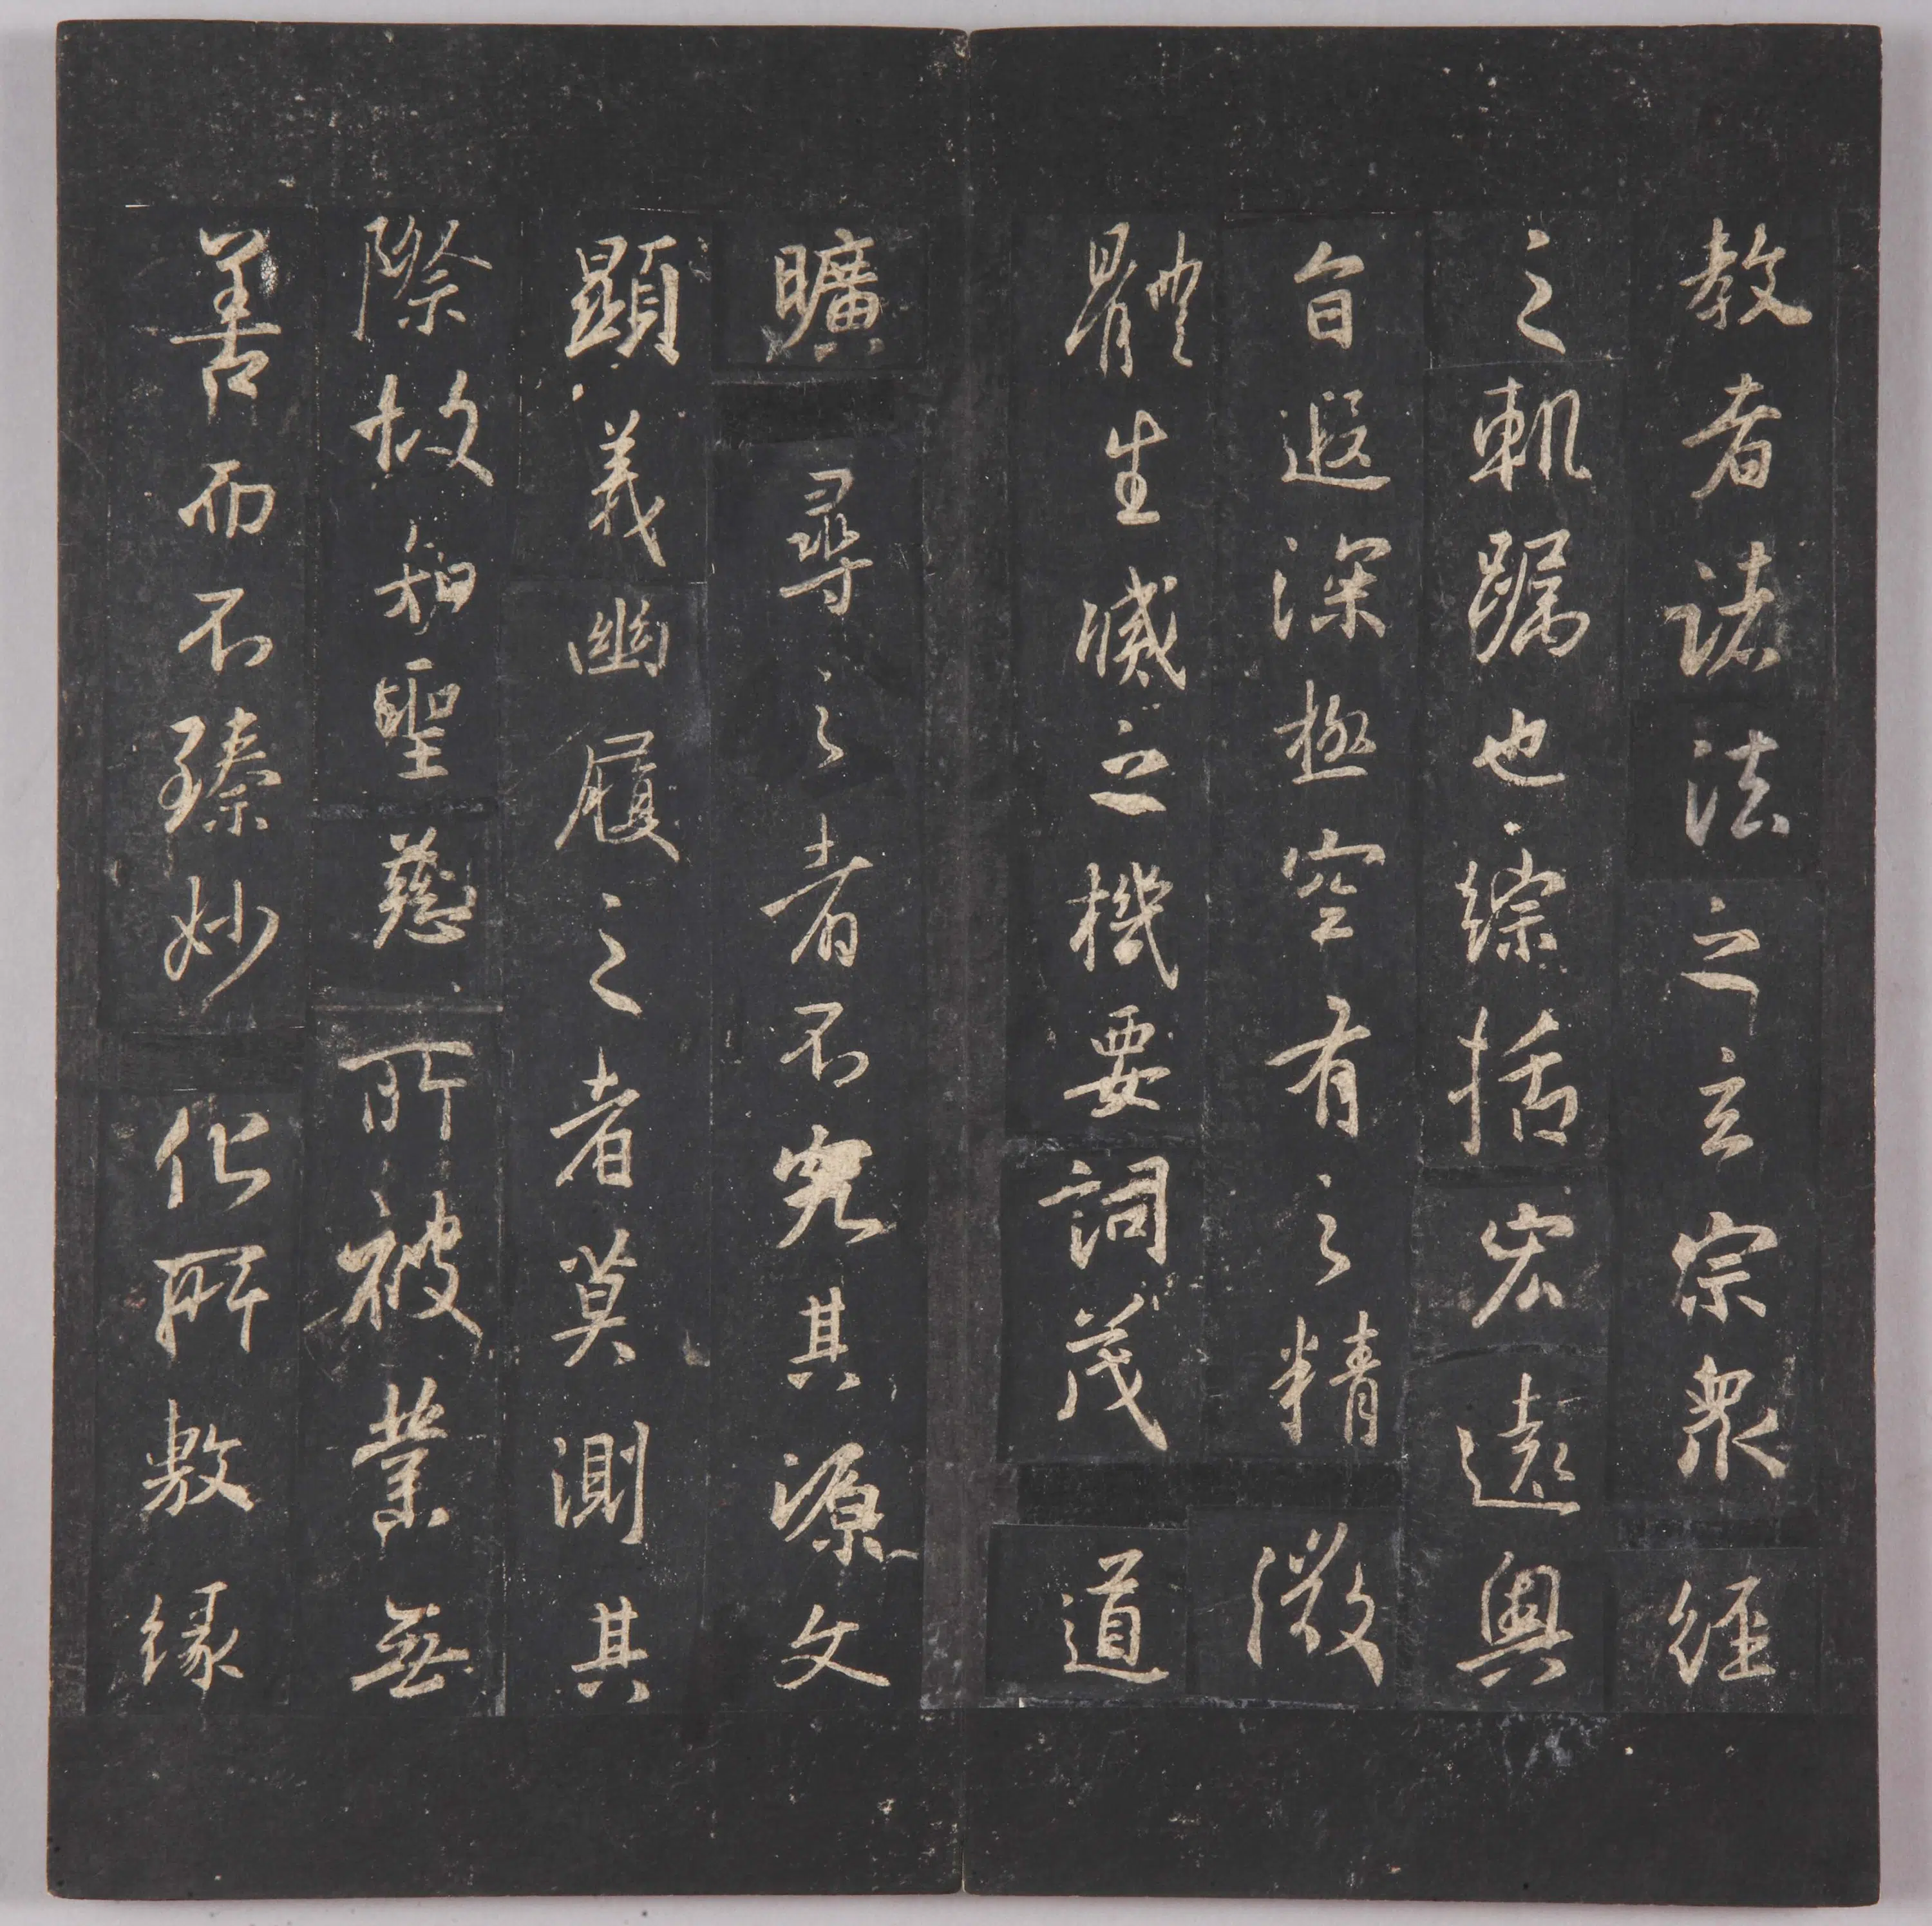 教者諸法之玄宗衆經
之軌躅也綜括宏遠奧
旨遐深極空有之精微
體生滅之機要詞茂道
曠尋之者不究其源文
顯義幽履之者莫測其
際故知聖慈所被業無
善而不臻妙化所敷緣